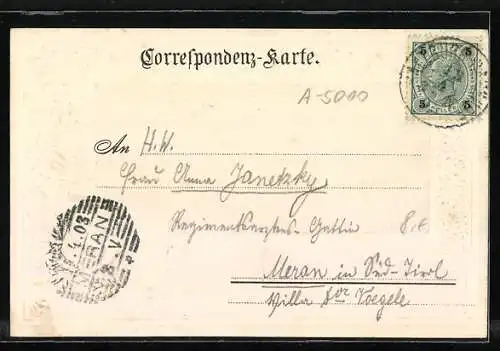 Correspondenz-Karte.
A-5000
5 5
An H.W.
Frau Anna Janetzky
Regimentsarztes-Gattin
Meran in Süd-Tirol
Villa Voegele
4.03
MERAN
8.V